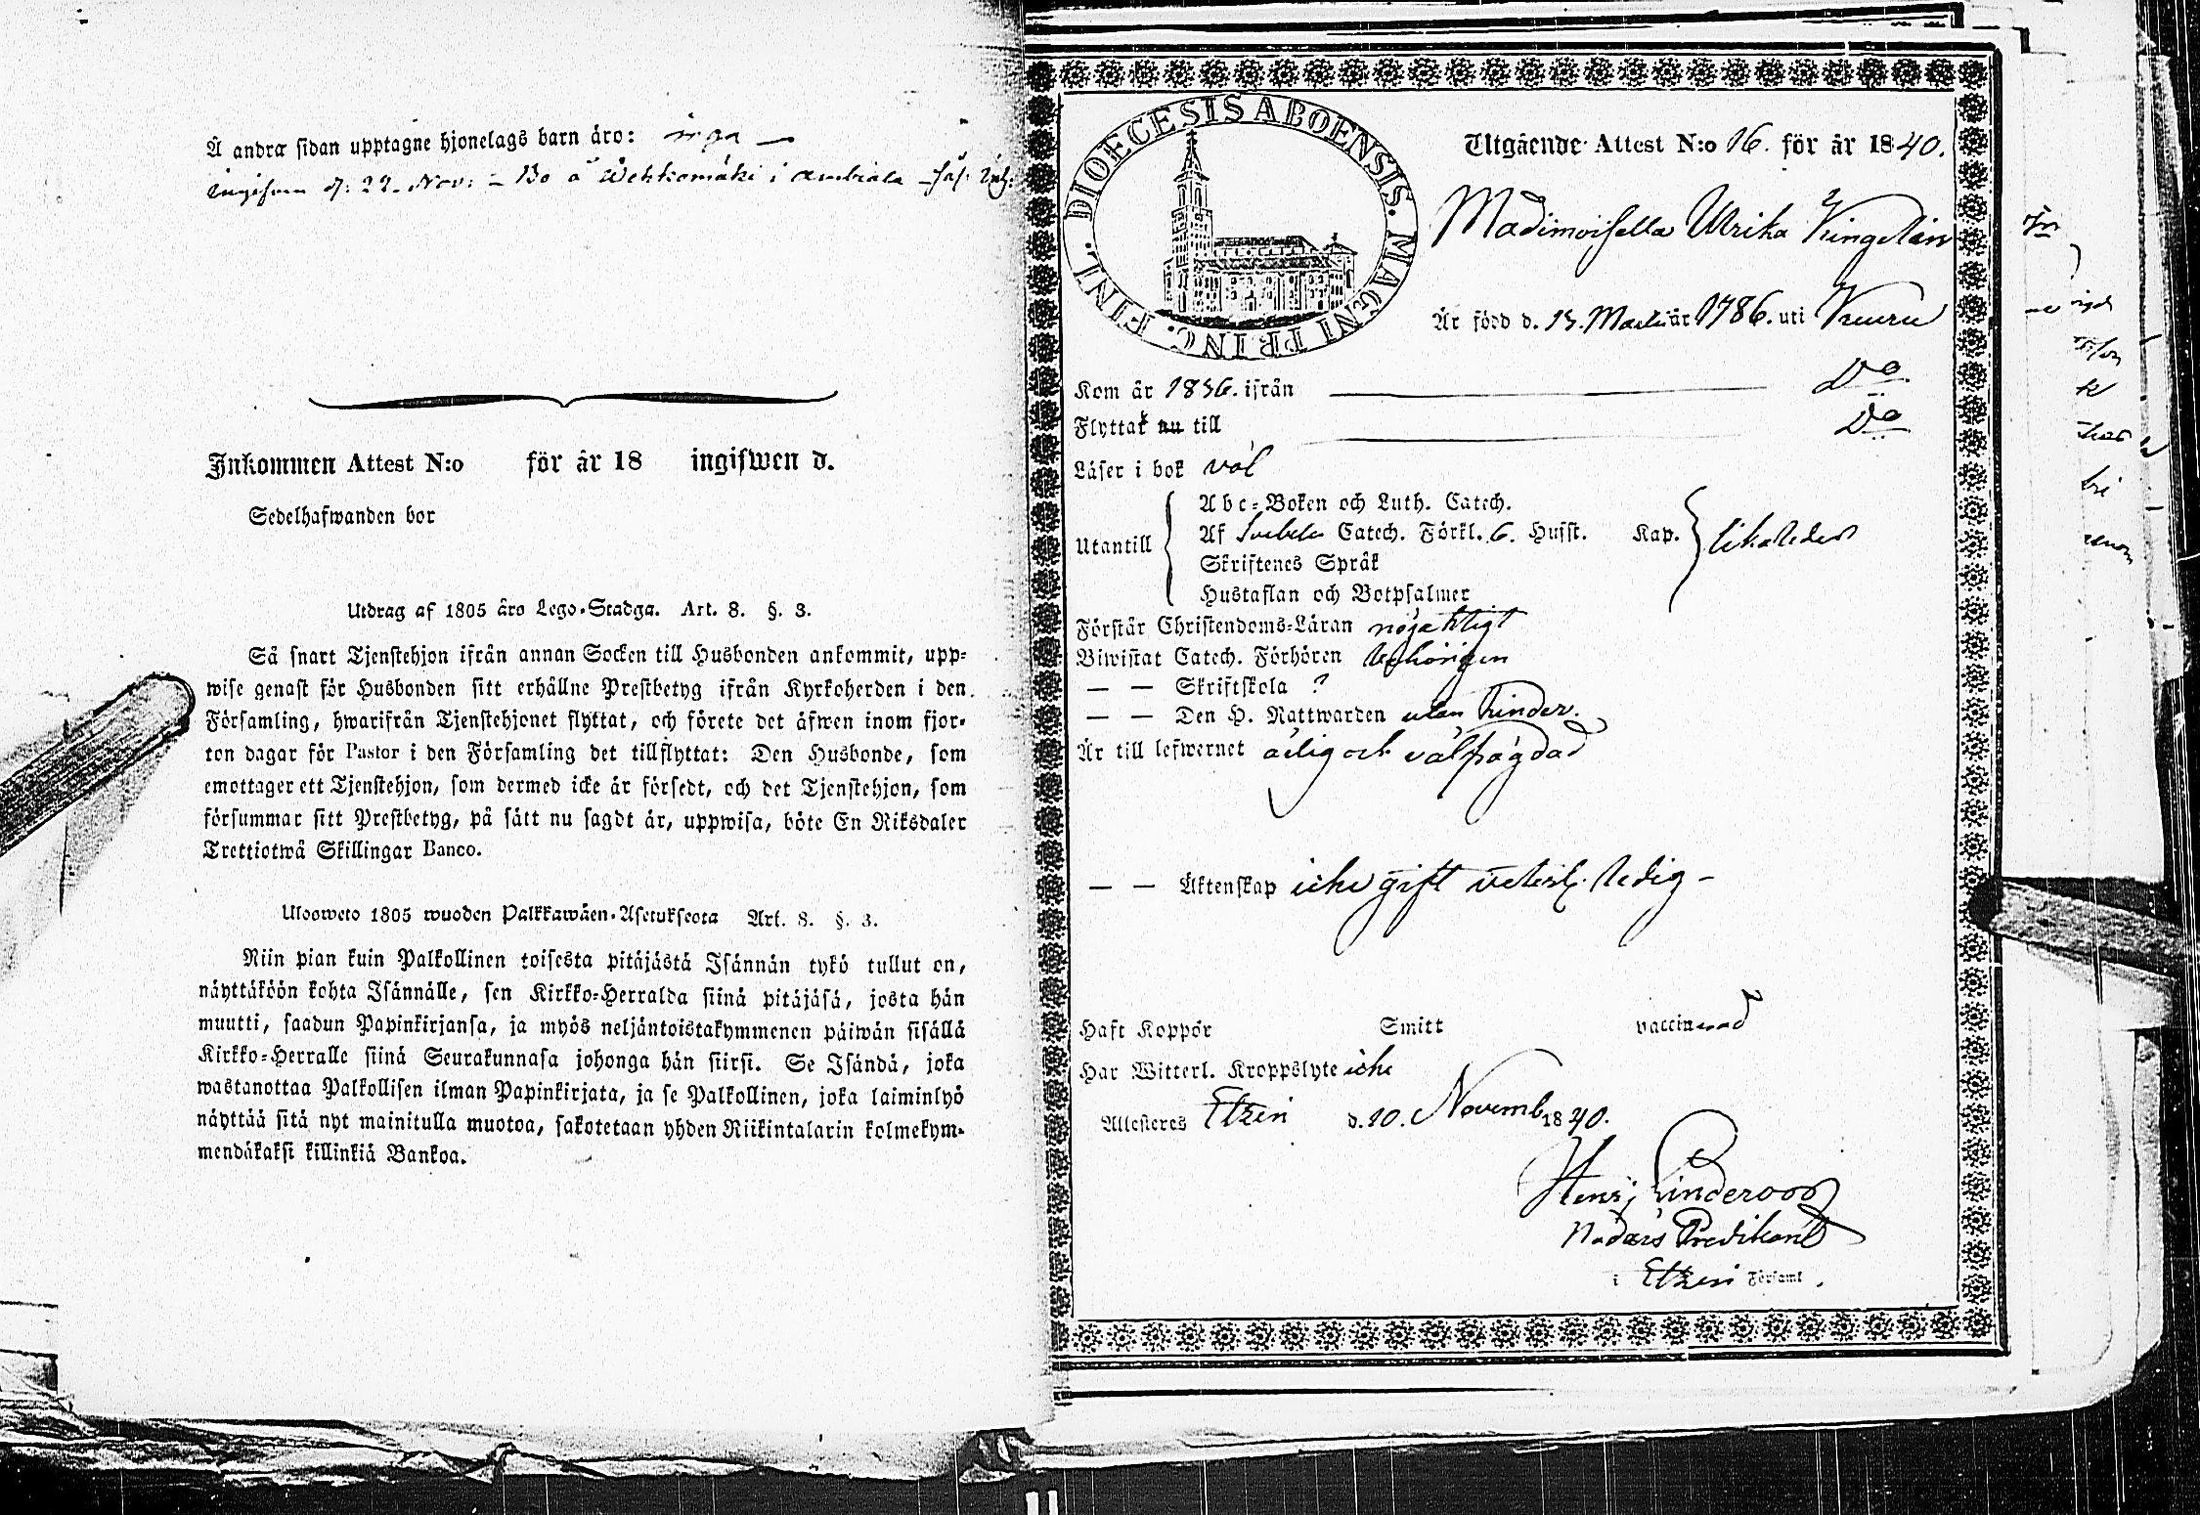 Å andra sidan upptagne hjonelags barn äro: inga —
d: 22. Nov: — Bo å i
Inkommen Attest N:o för år 18 ingifwen d.
Sedelhafwanden bor
Utdrag af 1805 års Lego-Stadga. Art. 8. §. 3.
Så snart Tjenstehjon ifrån annan Socken till Husbonden ankommit, upp-
wise genast för Husbonden sitt erhållne Prestbetyg ifrån Kyrkoherden i den
Församling, hwarifrån Tjenstehjonet flyttat, och förete det äfwen inom fjor-
ton dagar för Pastor i den Församling det tillflyttat: Den Husbonde, som
emottager ett Tjenstehjon, som dermed icke är försedt, och det Tjenstehjon, som
försummar sitt Prestbetyg, på sätt nu sagdt är, uppwisa, böte En Riksdaler
Trettiotwå Skillingar Banco.
Uloswето 1805 wuoden Palkkawäen-Asetuksesta Art. 8. §. 3.
Niin pian kuin Palkollinen toisesta pitäjästä Isännän tykö tullut on,
näyttäköön kohta Isännälle, sen Kirkko-Herralda siinä pitäjäsä, josta hän
muutti, saadun Papinkirjansa, ja myös neljäntoistakymmenen päiwän sisällä
Kirkko-Herralle siinä Seurakunnasa johonga hän siirsi. Se Isändä, joka
wastanottaa Palkollisen ilman Papinkirjata, ja se Palkollinen, joka laiminlyö
näyttää sitä nyt mainitulla muotoa, sakotetaan yhden Riikintalarin kolmekym-
mendäkaksi killinkiä Bankoa.
DIOECESIS ABOENSIS. MAGNI PRINC. FINL.
Utgående Attest N:o 16. för år 1840.
Madimoisella Ulrika
Är född d. 13. Martii år 1786. uti
Kom år 1836. ifrån Do
Flyttat nu till Do
Läser i bok väl
Utantill
Abc-Boken och Luth. Catech.
Af Svebelii Catech. Förkl. 6. Hufst. Kap. likaledes
Skriftenes Språk
Hustaflan och Botpsalmer
Förstår Christendoms-Läran nöjaktigt
Biwistat Catech. Förhören behörigen
— — Skriftskola ?
— — Den H. Nattwarden utan hinder.
Är till lefwernet ärlig och välfrägdad
— — Äktenskap icke gift ledig —
Haft Koppor Smitt vaccinerad
Har Witterl. Kroppslyte icke
Attesteras Etzeri d. 10. Novemb. 1840.
Predikant
i Etzeri Församl.